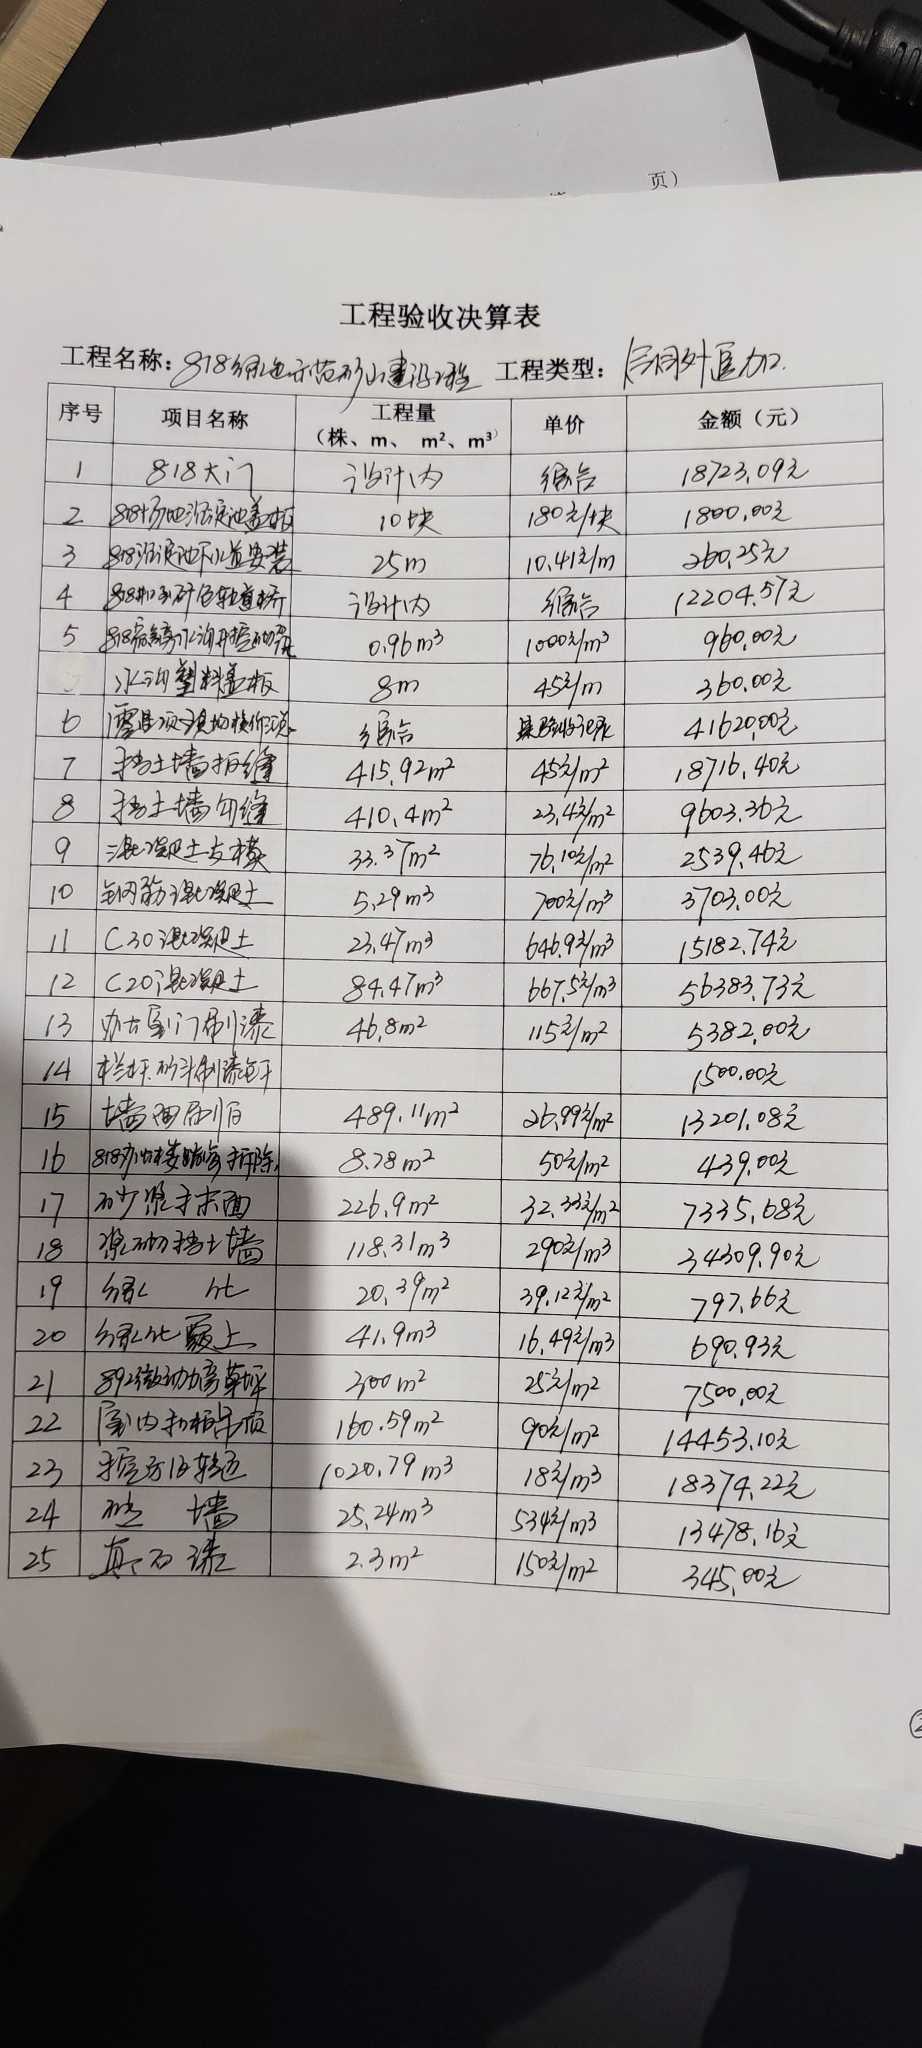 页）
工程验收决算表
工程名称：818绿色示范矿山建设工程 工程类型：合同外增加
序号 项目名称 工程量（株、m、 m²、m³） 单价 金额（元）
1 818大门 设计内 综合 18723.09元
2 818场地沉淀池盖板 10块 180元/块 1800.00元
3 818沉淀池下水道安装 25m 10.41元/m 260.25元
4 设计内 综合 12204.57元
5 0.96m³ 1000元/m³ 960.00元
水沟塑料盖板 8m 45元/m 360.00元
6 综合 41620.00元
7 挡土墙拆缝 415.92m² 45元/m² 18716.40元
8 挡土墙勾缝 410.4m² 23.4元/m² 9603.36元
9 混凝土支模 33.37m² 76.10元/m² 2539.46元
10 钢筋混凝土 5.29m³ 700元/m³ 3703.00元
11 C30混凝土 23.47m³ 646.9元/m³ 15182.74元
12 C20混凝土 84.47m³ 667.5元/m³ 56383.73元
13 办公室门刷漆 46.8m² 115元/m² 5382.00元
14 1500.00元
15 墙面刷白 489.11m² 26.99元/m² 13201.08元
16 8.78m² 50元/m² 439.00元
17 砂浆抹面 226.9m² 32.33元/m² 7335.68元
18 浆砌挡土墙 118.31m³ 290元/m³ 34309.90元
19 绿 化 20.39m² 39.12元/m² 797.66元
20 绿化覆土 41.9m³ 16.49元/m³ 690.93元
21 300m² 25元/m² 7500.00元
22 室内扣板吊顶 160.59m² 90元/m² 14453.10元
23 挖方及转运 1020.79m³ 18元/m³ 18374.22元
24 砖 墙 25.24m³ 534元/m³ 13478.16元
25 真石漆 2.3m² 150元/m² 345.00元